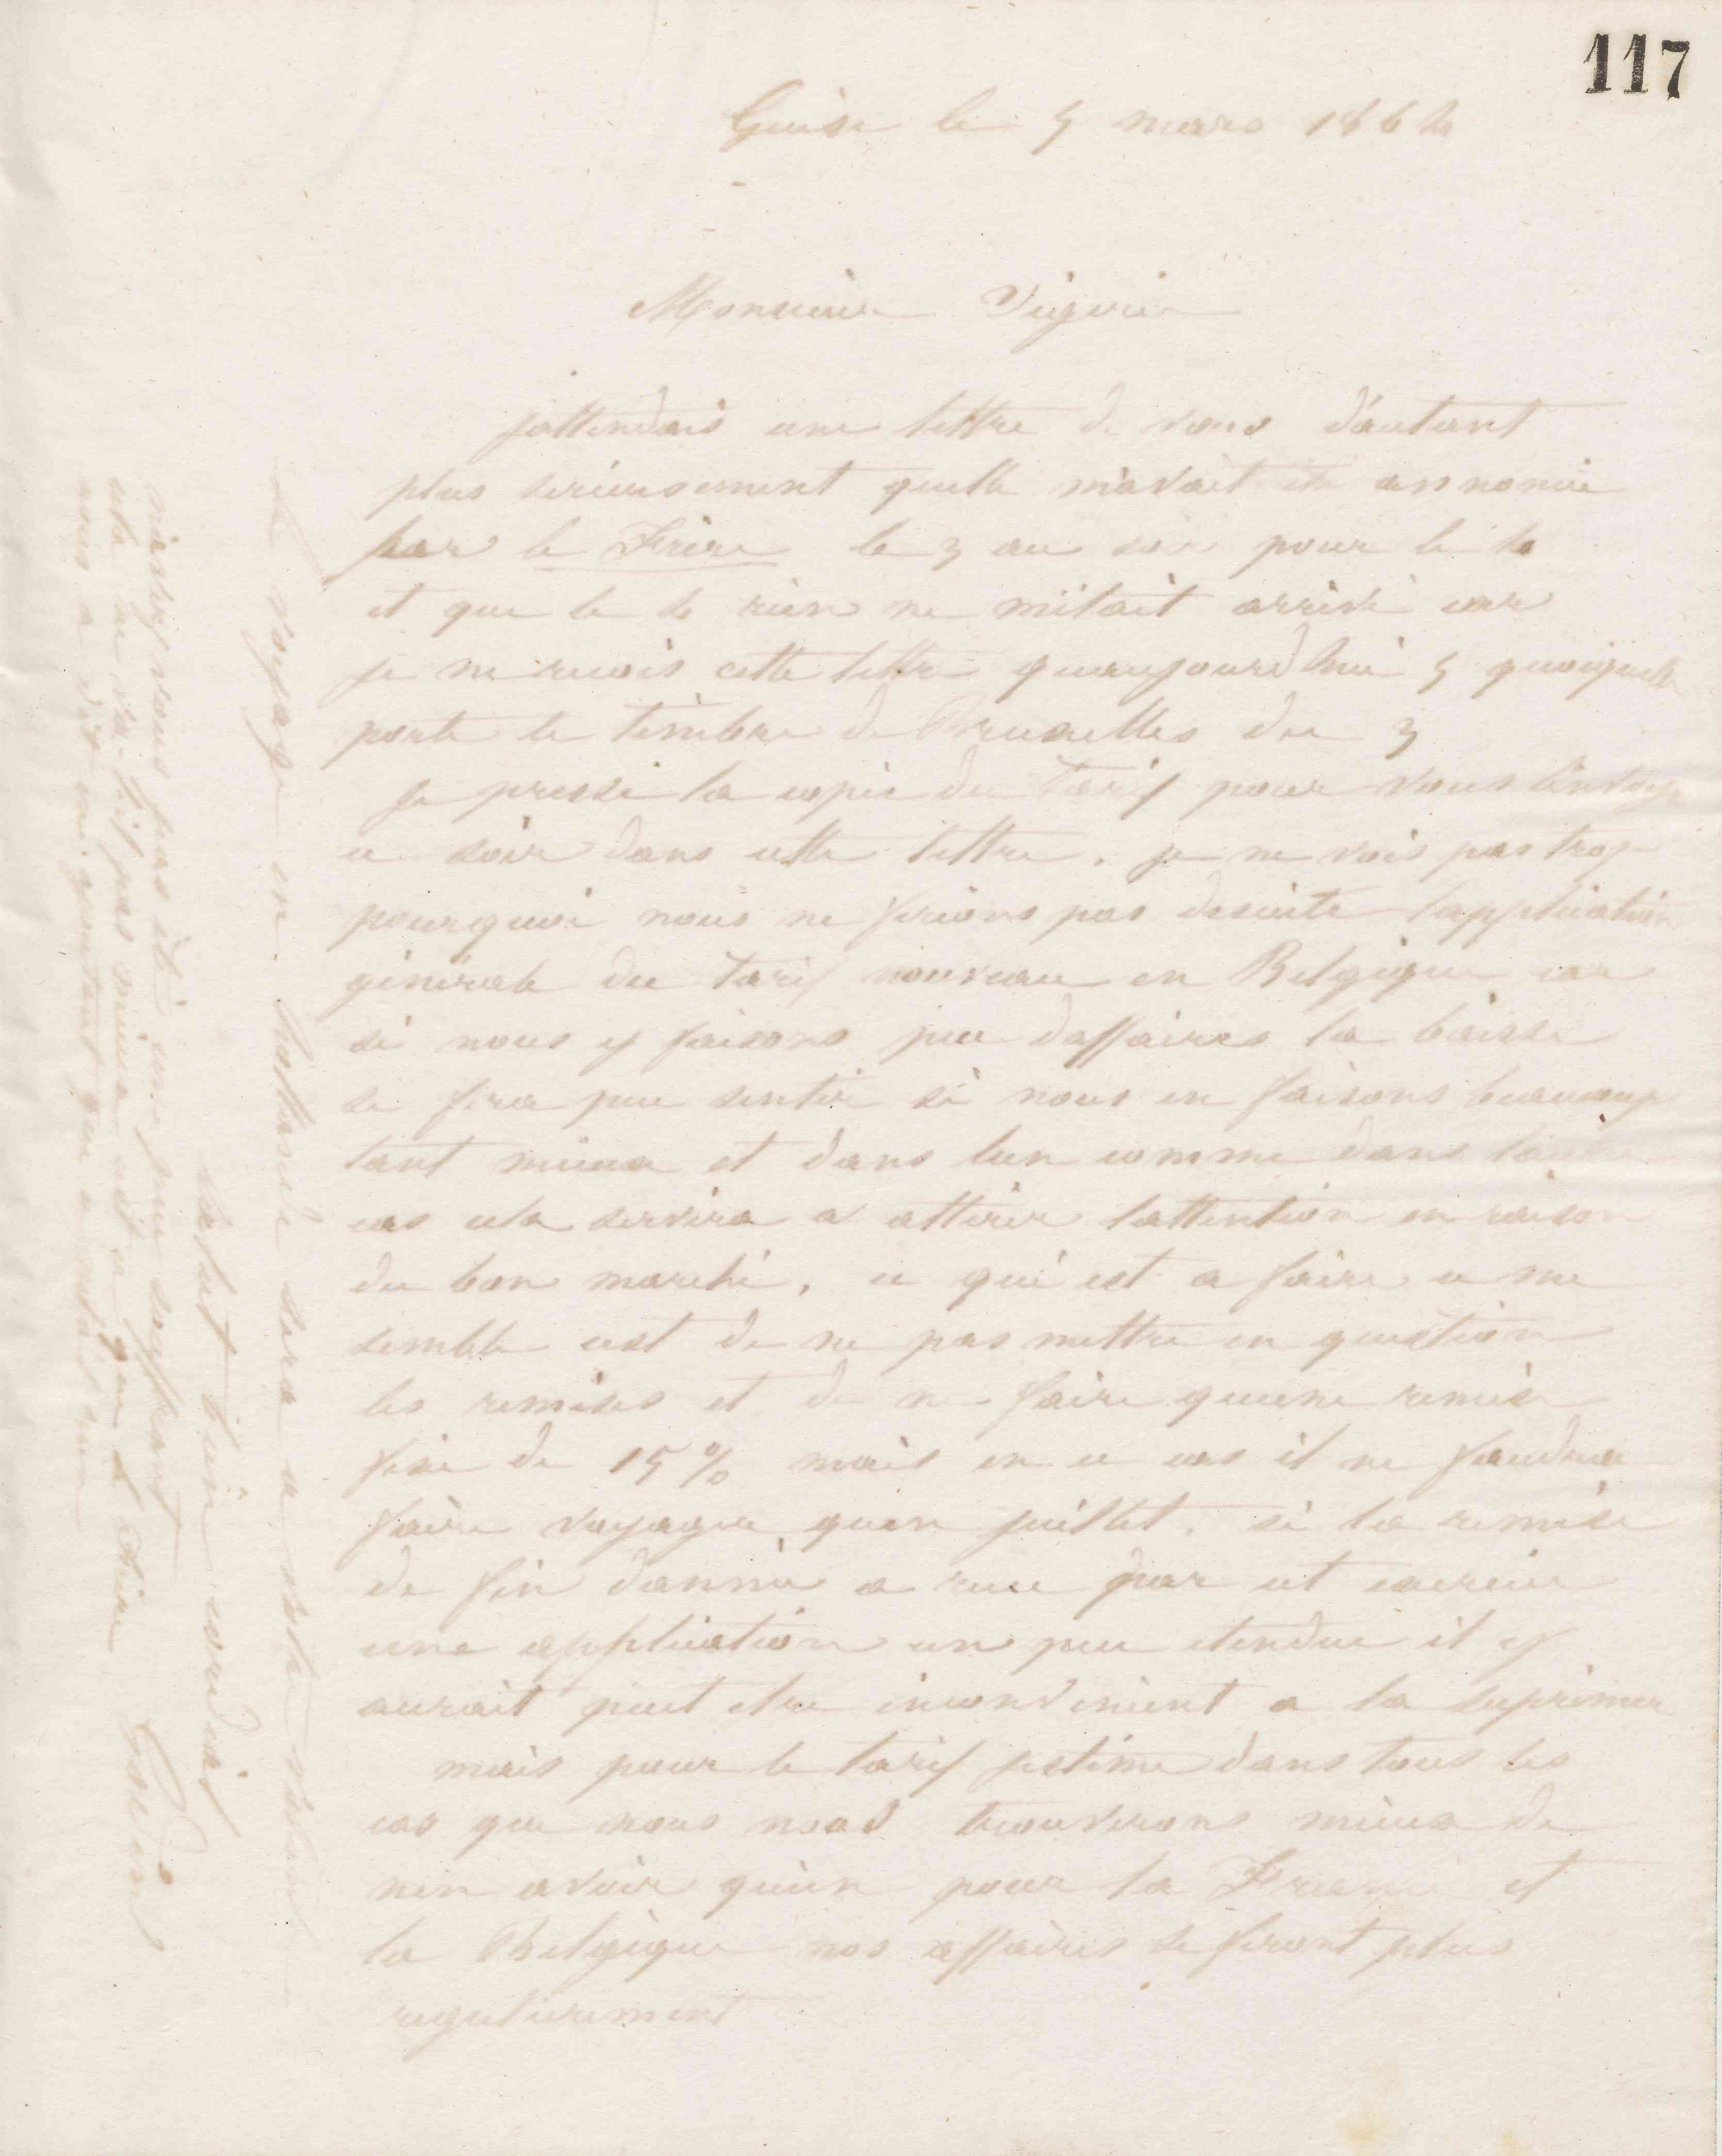 117
Guise le 5 mars 1864
Monsieur Viguier
jattendais une lettre de vous d'autant
plus serieusement quelle m'avait ete annoncée
par le Frère le 3 au soir pour le 4
et que le 4 rien ne m'était arrivé car
je ne recois cette lettre quaujourdhui 5 quoiquelle
porte le timbre de Bruxelles du 3
je presse la copie du tarif pour vous l'envoyer
ce soir dans cette lettre. je ne vois pas trop
pourquoi nous ne ferions pas desuite lapplication
générale du tarif nouveau en Belgique car
si nous y faisons peu daffaires la baisse
se fera peu sentir si nous en faisons beaucoup
tant mieux et dans lun comme dans lautre
cas cela servira a attirer lattention en raison
du bon marché. ce qui est a faire ce me
semble cest de ne pas mettre en question
les remises et de ne faire quune remise
fixe de 15 % mais en ce cas il ne faudra
faire voyager quen juillet. si la remise
de fin dannée a recu par cet exercice
une application un peu etendue il y
aurait peut etre inconvenient a la suprimer
mais pour le tarif jestime dans tous les
cas que nous nous trouverons mieux de
nen avoir quun pour la France et
la Belgique nos affaires se feront plus
regulierement
Le voyage en hollande sera a votre
Salut bien cordial
Godin
n'avez vous pas été un peu souffrant
cela ne va-t-il pas mieux cest ce que le Frère
nous a dit en ajoutant que ce nétait rien